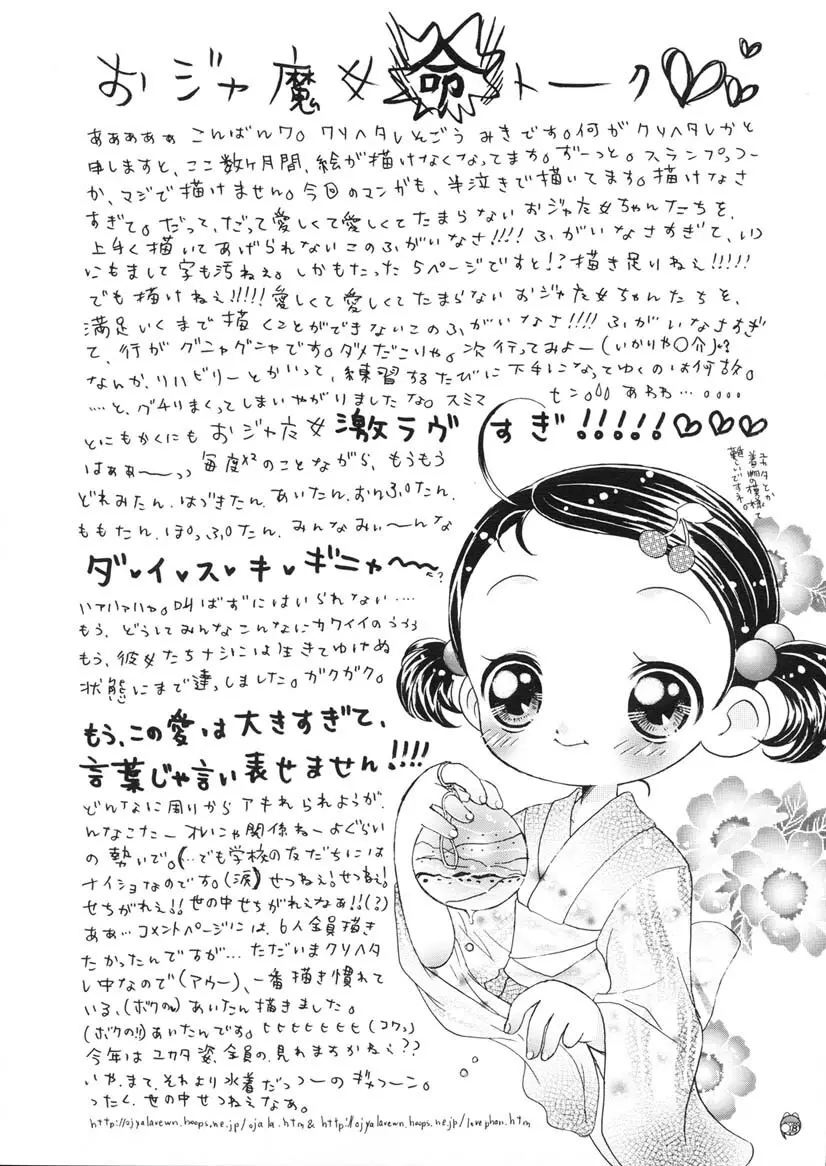 おジャ魔女命トーク
ああああぁ こんばんワ。クリヘタレそごう みきです。何がクリヘタレかと
申しますと、ここ数ヶ月間、絵が描けなくなってます。ずーっと。スランプっつー
か、マジで描けません。今回のマンガも、半泣きで描いてます。描けなさ
すぎて。だって、だって愛しくて愛しくてたまらない おジャ女ちゃんたちを、
上手く描いてあげられないこのふがいなさ!!!! ふがいなさすぎて、いつ
にもまして字も汚ねぇ。しかもたった5ページですと!? 描き足りねえ!!!!!
でも描けねえ!!!!! 愛しくて愛しくてたまらない おジャ女ちゃんたちを、
満足いくまで描くことができないこのふがいなさ!!!! ふがいなさすぎ
て、行がグニャグニャです。ダメだこりゃ。次行ってみよー(いかりや〇介)
なんか、リハビリーとかいって、練習するたびに下手になってゆくのは何故。
……と、グチりまくってしまいやがりましたな。スミマセン。あわわ…
とにもかくにも おジャ女 激ラヴ すぎ!!!!!
はぁぁ〜〜っっ 毎度のことながら、もうもう
どれみたん、はづきたん、あいたん、おんぷたん、
ももたん、ぽっぷたん、みんなみぃ〜〜んな
ダ・イ・ス・キ・ギニャ〜〜
ハァハァハァ。叫ばずにはいられない……
もう、どうしてみんなこんなにカワイイのううう
もう、彼女たちナシには生きてゆけぬ
状態にまで達っしました。ガクガク。
もう、この愛は大きすぎて、
言葉じゃ言い表せません!!!!
どんなに周りからアキれられようが、
んなこたーオレにゃ関係ねーよぐらい
の勢いで。(…でも学校の友だちには
ナイショなのです。(涙)せつねえ!せつねえ!
せちがれえ!!世の中せちがれえなぁ!!(?)
ああ…コメントページには、6人全員描き
たかったんですが…ただいまクリヘタ
レ中なので(アウー)、一番描き慣れて
いる、(ボクの)あいたん描きました。
(ボクの!!)あいたんです。ヒヒヒヒヒヒ(コワっ)
今年はユカタ姿、全員の見れますかねぇ??
いや、まて、それより水着だっつーのギャフーン。
ったく、世の中せつねえなあ。
http://ojyalavewn.hoops.ne.jp/ojala.htm & http://ojyalavewn.hoops.ne.jp/lovephan.htm
ユカタとか
着物の模様って
難しいですネ。